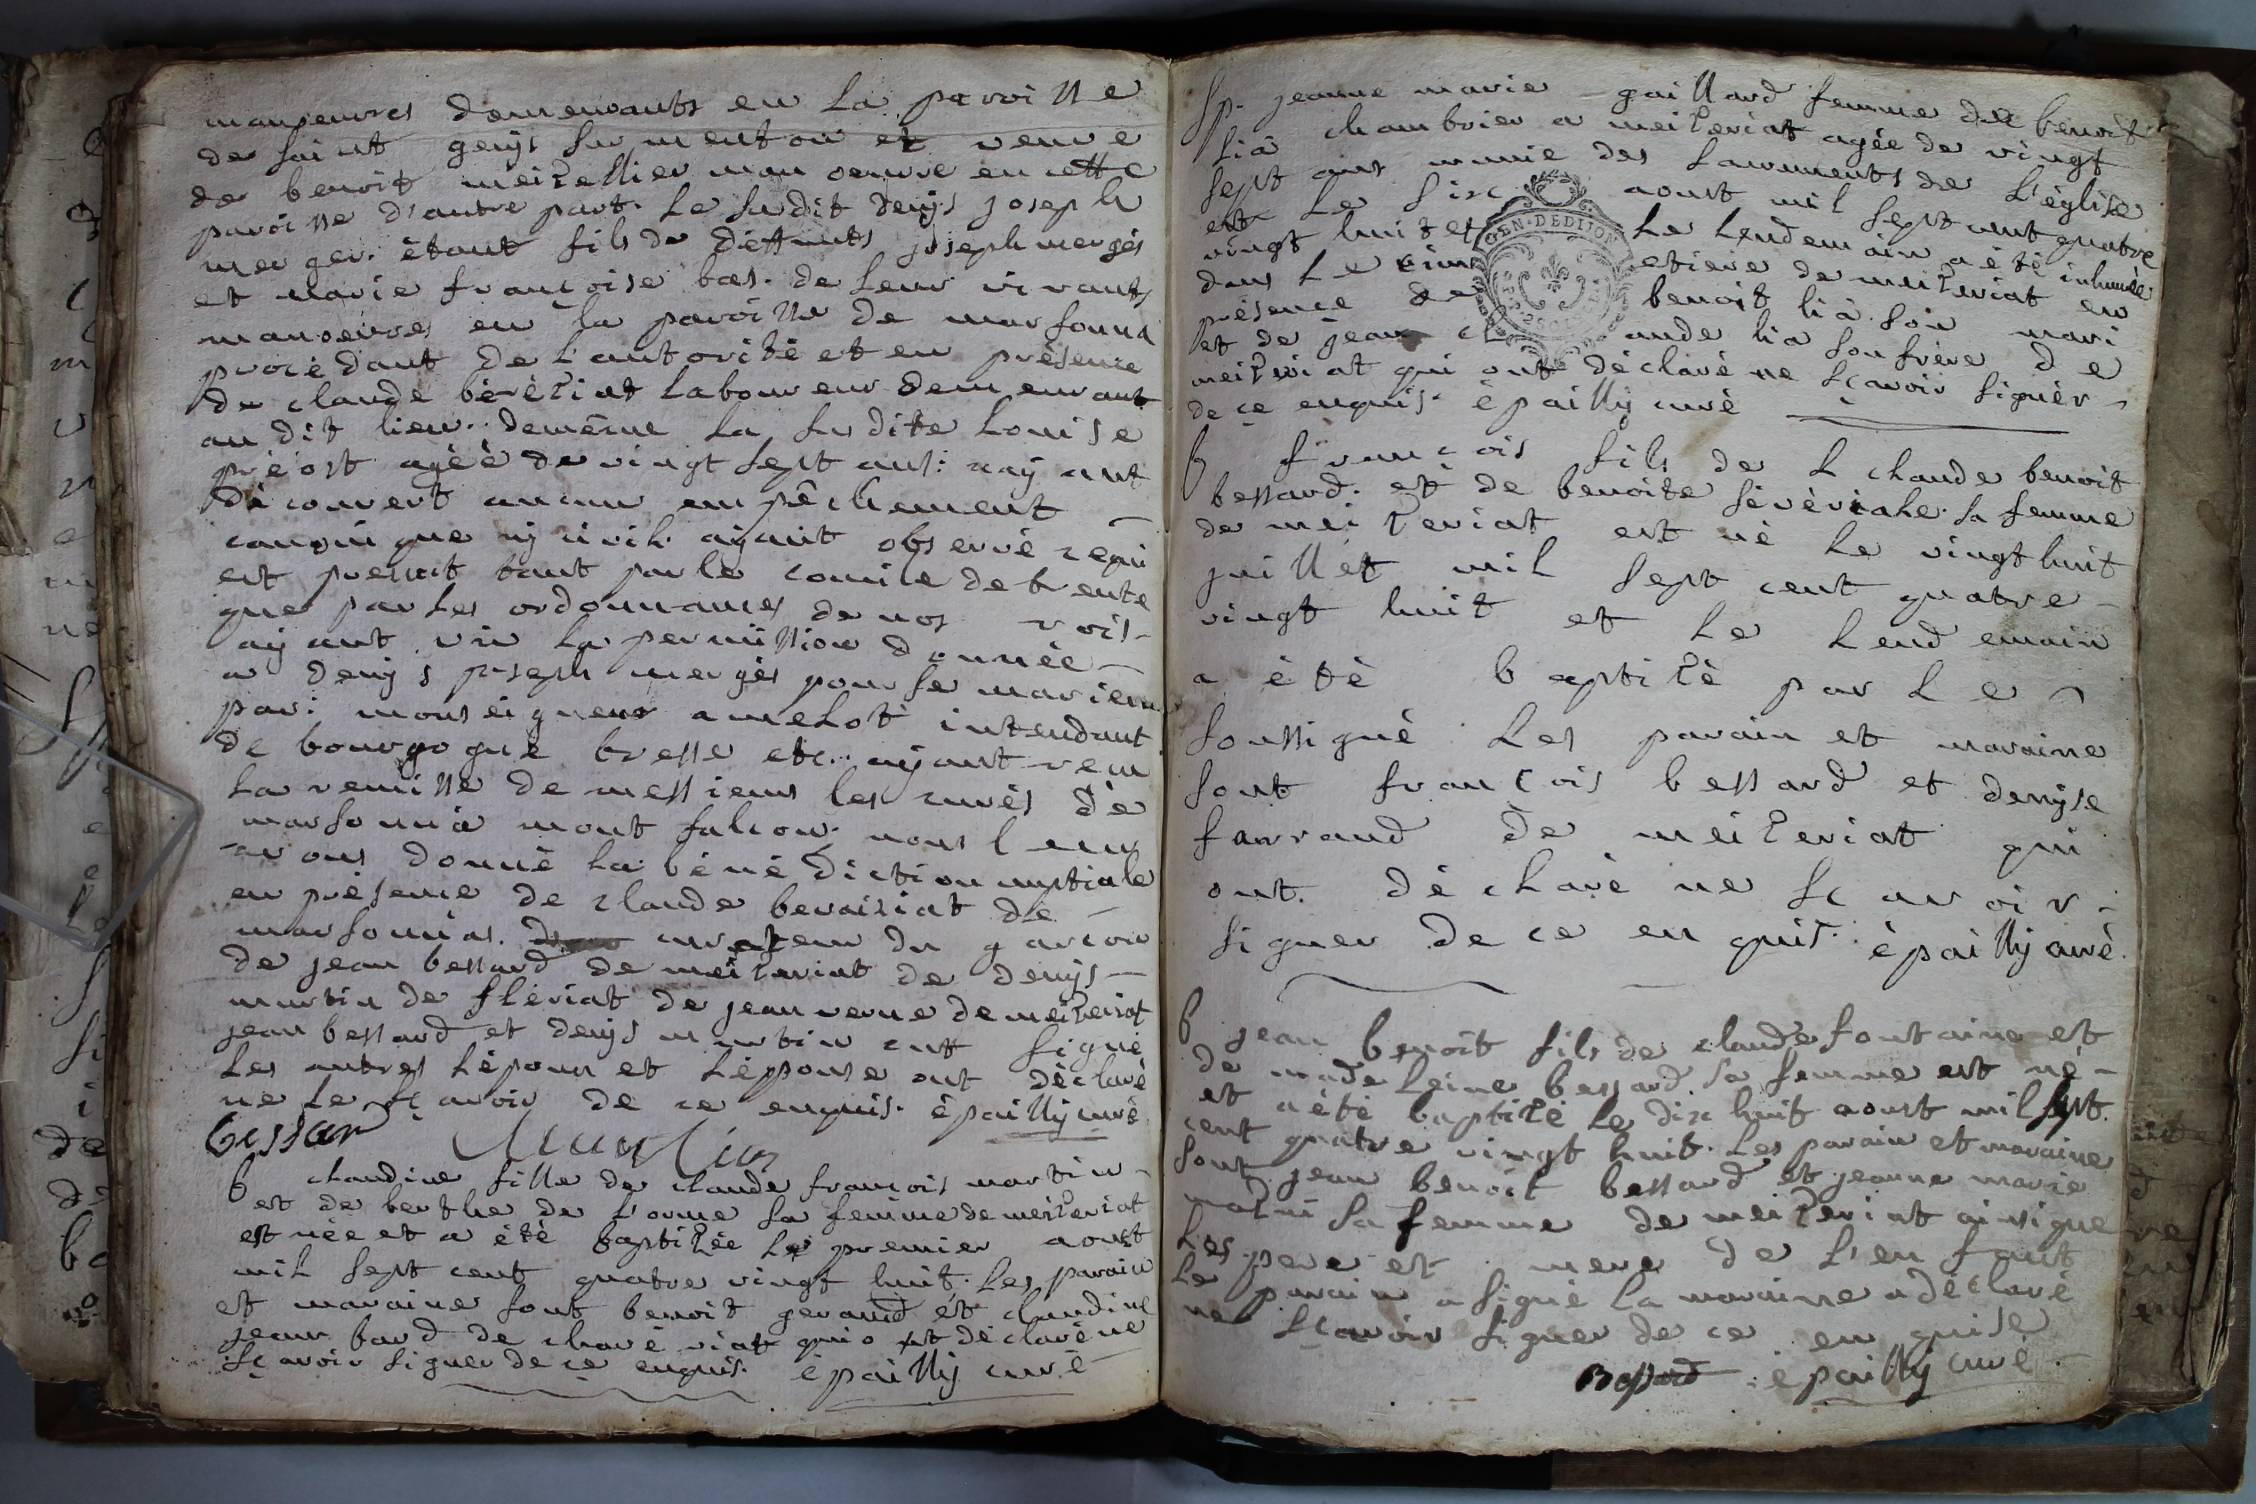 manoeuvres demeurants en la paroisse
de saint genys sur menton et veuve
de benoit meizellier manoeuvre en cette
paroisse d'autre part. Le sudit denys joseph
merger. étant fils de déffunts joseph mergés
et marie françoise bas. de leur vivants
manoeuvres en la paroisse de marsonna
procèdant de l'autorité et en présence
de claude béréziat laboureur demeurant
au dit lieu. demême la sudite Louise
prèost agéé de vingt sept ans: nay ant
découvert aucun empêchement
canonique ny civil. ayant observé cequi
est prescrit tant par le concile de trente
que par les ordonnances de nos rois
ayant vû la permission donnée
a denys joseph mergés pour se marier
par: monseigneur amelot intendant
de bourgogne bresse etc.. ayant veu
La remisse de messieurs les curés de
marsonna mont falcon. nous leur
avons donné la bénédiction nuptiale
en présence de claude beraiziat de
marsonnas. curateur du garcon
de jean bessard de meizeriat de denys
martin de fleriat de jean verne de meizeriat
jean bessard et denys martin ont signé
Les autres Lépoux et Lépouse ont déclaré
ne Le sçavoir de ce enquis. épailly curé
bessar Martin
b claudine fille de claude françois martin
et de berthe de L'orme sa femme de meizeriat
est née et a été baptizée le premier aoust
mil sept cent quatre vingt huit. Les parain
et maraine sont benoit geraud et claudine
jean bard de chavériat qui ont déclaré ne
sçavoir signer de ce enquis. épailly curé
Sp. jeanne marie gaillard femme de benoit
Lià chambrier a meizeriat agée de vingt
sept ans munie des sacrements de L'église
est le six aoust mil sept cent quatre
vingt huit et Le Lendemain a été inhumée
dans Le cim etiere de meizeriat en
présence de benoit lià son mari
et de jean cl aude lia son frère de
meizeriat qui ont déclaré ne sçavoir signér
de ce enquis. épailly curé
b françois fils de L claude benoit
bessard. et de benoite séveriale. sa femme
de meizeriat est né Le vingt huit
juillet mil sept cent quatre
vingt huit et Le Lendemain
a été baptizé par Le
soussigné Les parain et maraine
sont françois bessard et denyse
farraud de meizeriat qui
ont. déclaré ne sçavoir
signer de ce enquis. épailly curé.
b jean benoit fils de claude fontaine et
de madeleine bessard sa femme est né
et a été baptizé Le dix huit aoust mil sept.
cent quatre vingt huit. Les parain et maraine
sont jean benoit bessard et jeanne marie
sa femme de meizeriat ainsi que
Les pere et mere de L'enfant
Le parain a signé La maraine a déclaré
ne sçavoir signer de ce enquise
Bessard épailly curé.